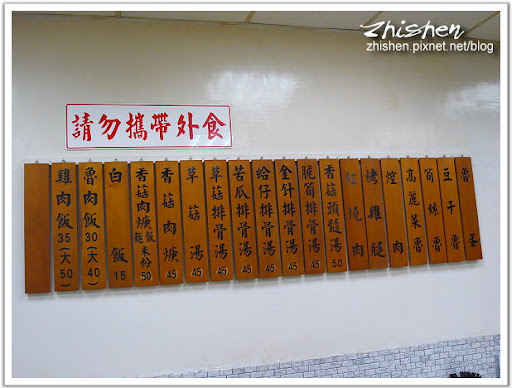 zhishen
zhishen.pixnet.net/blog
請勿攜帶外食
雞肉飯35(大50)
魯肉飯30(大40)
白飯15
香菇肉焿飯麵米粉50
香菇肉焿45
草菇湯45
草菇排骨湯45
苦瓜排骨湯45
蛤仔排骨湯45
金針排骨湯45
脆筍排骨湯45
香菇頭髓湯50
紅燒肉
烤雞腿
焢肉
高麗菜魯
筍絲魯
豆干魯
魯蛋